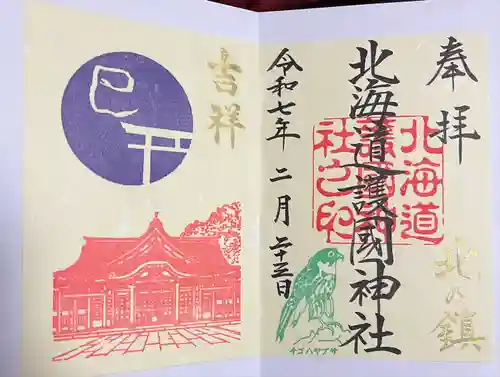 奉拝
北海道護國神社
北海道
護國神
社之印
北の鎮
令和七年 二月 二十三日
チゴハヤブサ
吉祥
巳